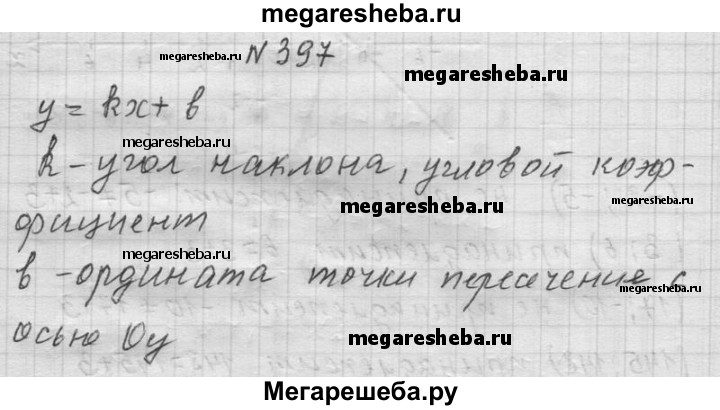 megaresheba.ru
N 397
megaresheba.ru
megaresheba.ru
y = kx + b
megaresheba.ru
k - угол наклона, угловой коэф-
megaresheba.ru
megaresheba.ru
фициент
megaresheba.ru
b - ордината точки пересечение с
megaresheba.ru
осью Oy
megaresheba.ru
megaresheba.ru
Мегарешеба.ру